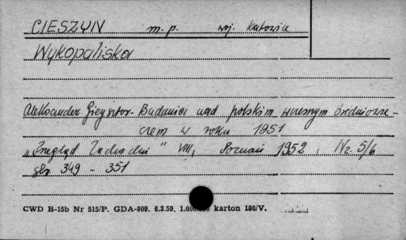 CIESZYN m.p. woj. Katowice
Wykopaliska
Aleksander Gieysztor - Badania nad polskim wczesnym średniowie-
czem w roku 1951
"Przegląd Zachodni" VIII, Poznań 1952, Nr. 5/6
str 349 - 351
CWD B-15b Nr 515/P. GDA-809. 6.3.59. karton 180/V.